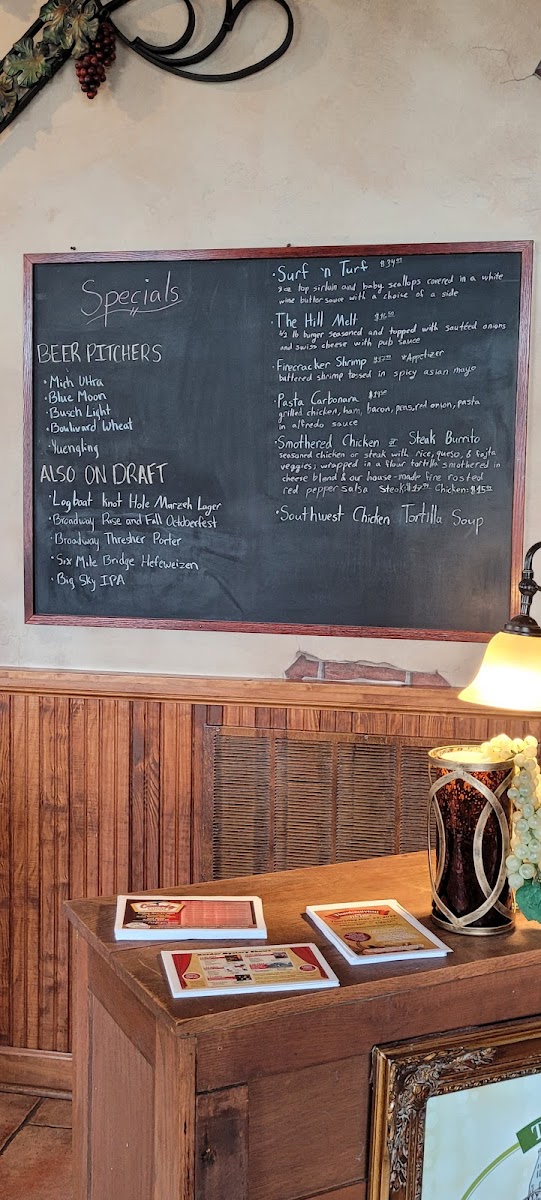 Specials
BEER PITCHERS
· Mich Ultra
· Blue Moon
· Busch Light
· Boulvard Wheat
· Yuengling
ALSO ON DRAFT
· Logboat Knot Hole Marzeh Lager
· Broadway Rise and Fall Octoberfest
· Broadway Thresher Porter
· Six Mile Bridge Hefeweizen
· Big Sky IPA
· Surf 'n Turf
top sirloin and baby scallops covered in a white
wine butter sauce with a choice of a side
· The Hill Melt
1/2 lb burger seasoned and topped with sautéed onions
and swiss cheese with pub sauce
· Firecracker Shrimp *Appetizer
battered shrimp tossed in spicy asian mayo
· Pasta Carbonara
grilled chicken, ham, bacon, peas, red onion, pasta
in alfredo sauce
· Smothered Chicken or Steak Burrito
seasoned chicken or steak with rice, queso, & fajita
veggies; wrapped in a flour tortilla smothered in
cheese blend & our house-made fire rosted
red pepper salsa Steak: Chicken:
· Southwest Chicken Tortilla Soup